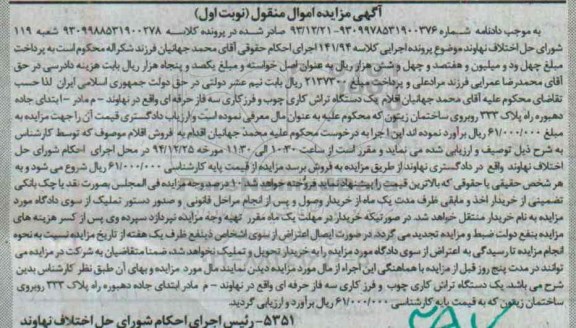 آگهی مزایده اموال منقول (نوبت اول)
به موجب دادنامه شماره ۹۳۰۹۹۷۸۵۳۱۹۰۰۳۷۶- ۹۳/۱۲/۲۱ صادر شده در پرونده کلاسه ۹۳۰۹۹۸۸۵۳۱۹۰۰۲۷۸ شعبه ۱۱۹
شورای حل اختلاف نهاوند موضوع پرونده اجرایی کلاسه ۱۴۱/۹۴ اجرای احکام حقوقی آقای محمد جهانیان فرزند شکراله محکوم است به پرداخت
مبلغ چهل ود و میلیون و هفتصد و چهل وشش هزار ریال به عنوان اصل خواسته و مبلغ یکصد و پنجاه هزار ریال بابت هزینه دادرسی در حق
آقای محمدرضا عمرایی فرزند مرادعلی و پرداخت مبلغ ۲۱۳۷۳۰۰ ریال بابت نیم عشر دولتی در حق دولت جمهوری اسلامی ایران لذا حسب
تقاضای محکوم علیه آقای محمد جهانیان اقلام یک دستگاه تراش کاری چوب و فرز کاری سه فاز حرفه ای واقع در نهاوند - م مادر - ابتدای جاده
دهبوره راه پلاک ۳۳۳ روبروی ساختمان زیتون که محکوم علیه به عنوان مال معرفی نموده است وارزیاب دادگستری قیمت آن را جهت مزایده به
مبلغ ۶۱/۰۰۰/۰۰۰ ریال برآورد نموده اند این اجرا به درخواست محکوم علیه محمد جهانیان اقدام به فروش اقلام موصوف که توسط کارشناس
به شرح ذیل توصیف و ارزیابی شده می نماید و مقرر است از ساعت ۱۰:۳۰ الی ۱۱:۳۰ مورخه ۹۴/۱۲/۲۵ در محل اجرای احکام شورای حل
اختلاف نهاوند واقع در دادگستری نهاوند از طریق مزایده به فروش برسد مزایده از قیمت پایه کارشناسی ۶۱/۰۰۰/۰۰۰ ریال شروع می شود و به
هر شخص حقیقی یا حقوقی که بالاترین قیمت را پیشنهاد نماید فروخته خواهد شد ۱۰ درصد وجه مزایده فی المجلس بصورت نقد یا چک بانکی
تضمینی از خریدار اخذ و مابقی ظرف مدت یک ماه از خریدار وصول و پس از انجام مراحل قانونی و صدور دستور تملیک از سوی دادگاه مورد
مزایده به نام خریدار منتقل خواهد شد. در صورتیکه خریدار در مهلت یک ماه مقرر بقیه وجه مزایده نپردازد سپرده وی پس از کسر هزینه های
مزایده بنفع دولت ضبط و مزایده تجدید می گردد. در صورت ایصال اعتراض از سوی اشخاص ذینفع ظرف یک هفته از تاریخ مزایده نسبت به نحوه
انجام مزایده تا رسیدگی به اعتراض از سوی دادگاه مورد مزایده به خریدار تحویل و تملیک نخواهد شد، ضمنا متقاضیان به شرکت در مزایده می
توانند در مدت پنج روز قبل از مزایده با هماهنگی این اجراء از مال مورد مزایده دیدن نمایند مال مورد مزایده و بهای آن طبق نظر کارشناسی بدین
شرح می باشد. یک دستگاه تراش کاری چوب و فرز کاری سه فاز حرفه ای واقع در نهاوند - م مادر ابتدای جاده دهبوره راه پلاک ۳۳۳ روبروی
ساختمان زیتون که به قیمت پایه کارشناسی ۶۱/۰۰۰/۰۰۰ ریال برآورد و ارزیابی گردید.
۵۳۵۱- رئیس اجرای احکام شورای حل اختلاف نهاوند